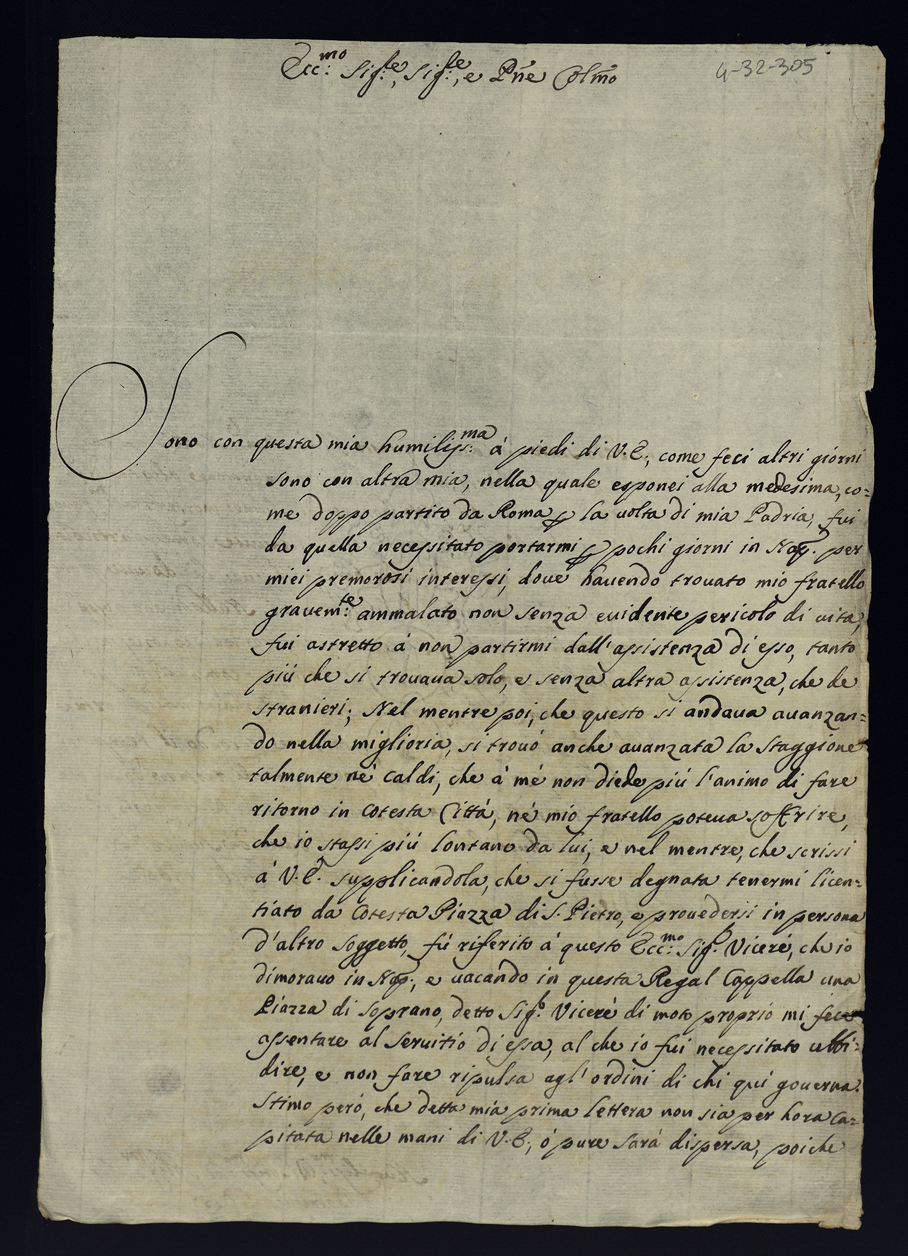 Ecc:mo Sig:re, Sig:re, e Pñe Colmo
4-32-305
Sono con questa mia humiliss:ma á piedi di V.E., come feci altri giorni
sono con altra mia, nella quale esponei alla medesima, co=
me doppo partito da Roma per la volta di mia Padria, fui
da quella necessitato portarmi per pochi giorni in Nap: per
miei premorosi interessi, dove havendo trovato mio fratello
gravem:te ammalato non senza evidente pericolo di vita,
fui astretto á non partirmi dall'assistenza di esso, tanto
piú che si trovava solo, e senza altra assistenza, che de
stranieri; Nel mentre poi, che questo si andava avanzan=
do nella miglioria, si trovó anche avanzata la staggione
talmente né caldi, che á mé non diede piú l'animo di fare
ritorno in cotesta Cittá, né mio fratello poteva soffrire,
che io stassi piú lontano da lui, e nel mentre, che scrissi
á V.E. supplicandola, che si fusse degnata tenermi licen=
tiato da cotesta Piazza di S. Pietro, e provedersi in persona
d'altro soggetto, fú riferito á questo Ecc:mo Sig:r Viceré, che io
dimoravo in Nap:, e vacando in questa Regal Cappella una
Piazza di soprano, detto Sig:r Viceré di moto proprio mi fece
assentare al servitio di essa, al che io fui necessitato ubbi=
dire, e non fare ripulsa agl'ordini di chi qui governa.
Stimo peró, che detta mia prima lettera non sia per hora ca=
pitata nelle mani di V.E., ó pure sará dispersa, poiche